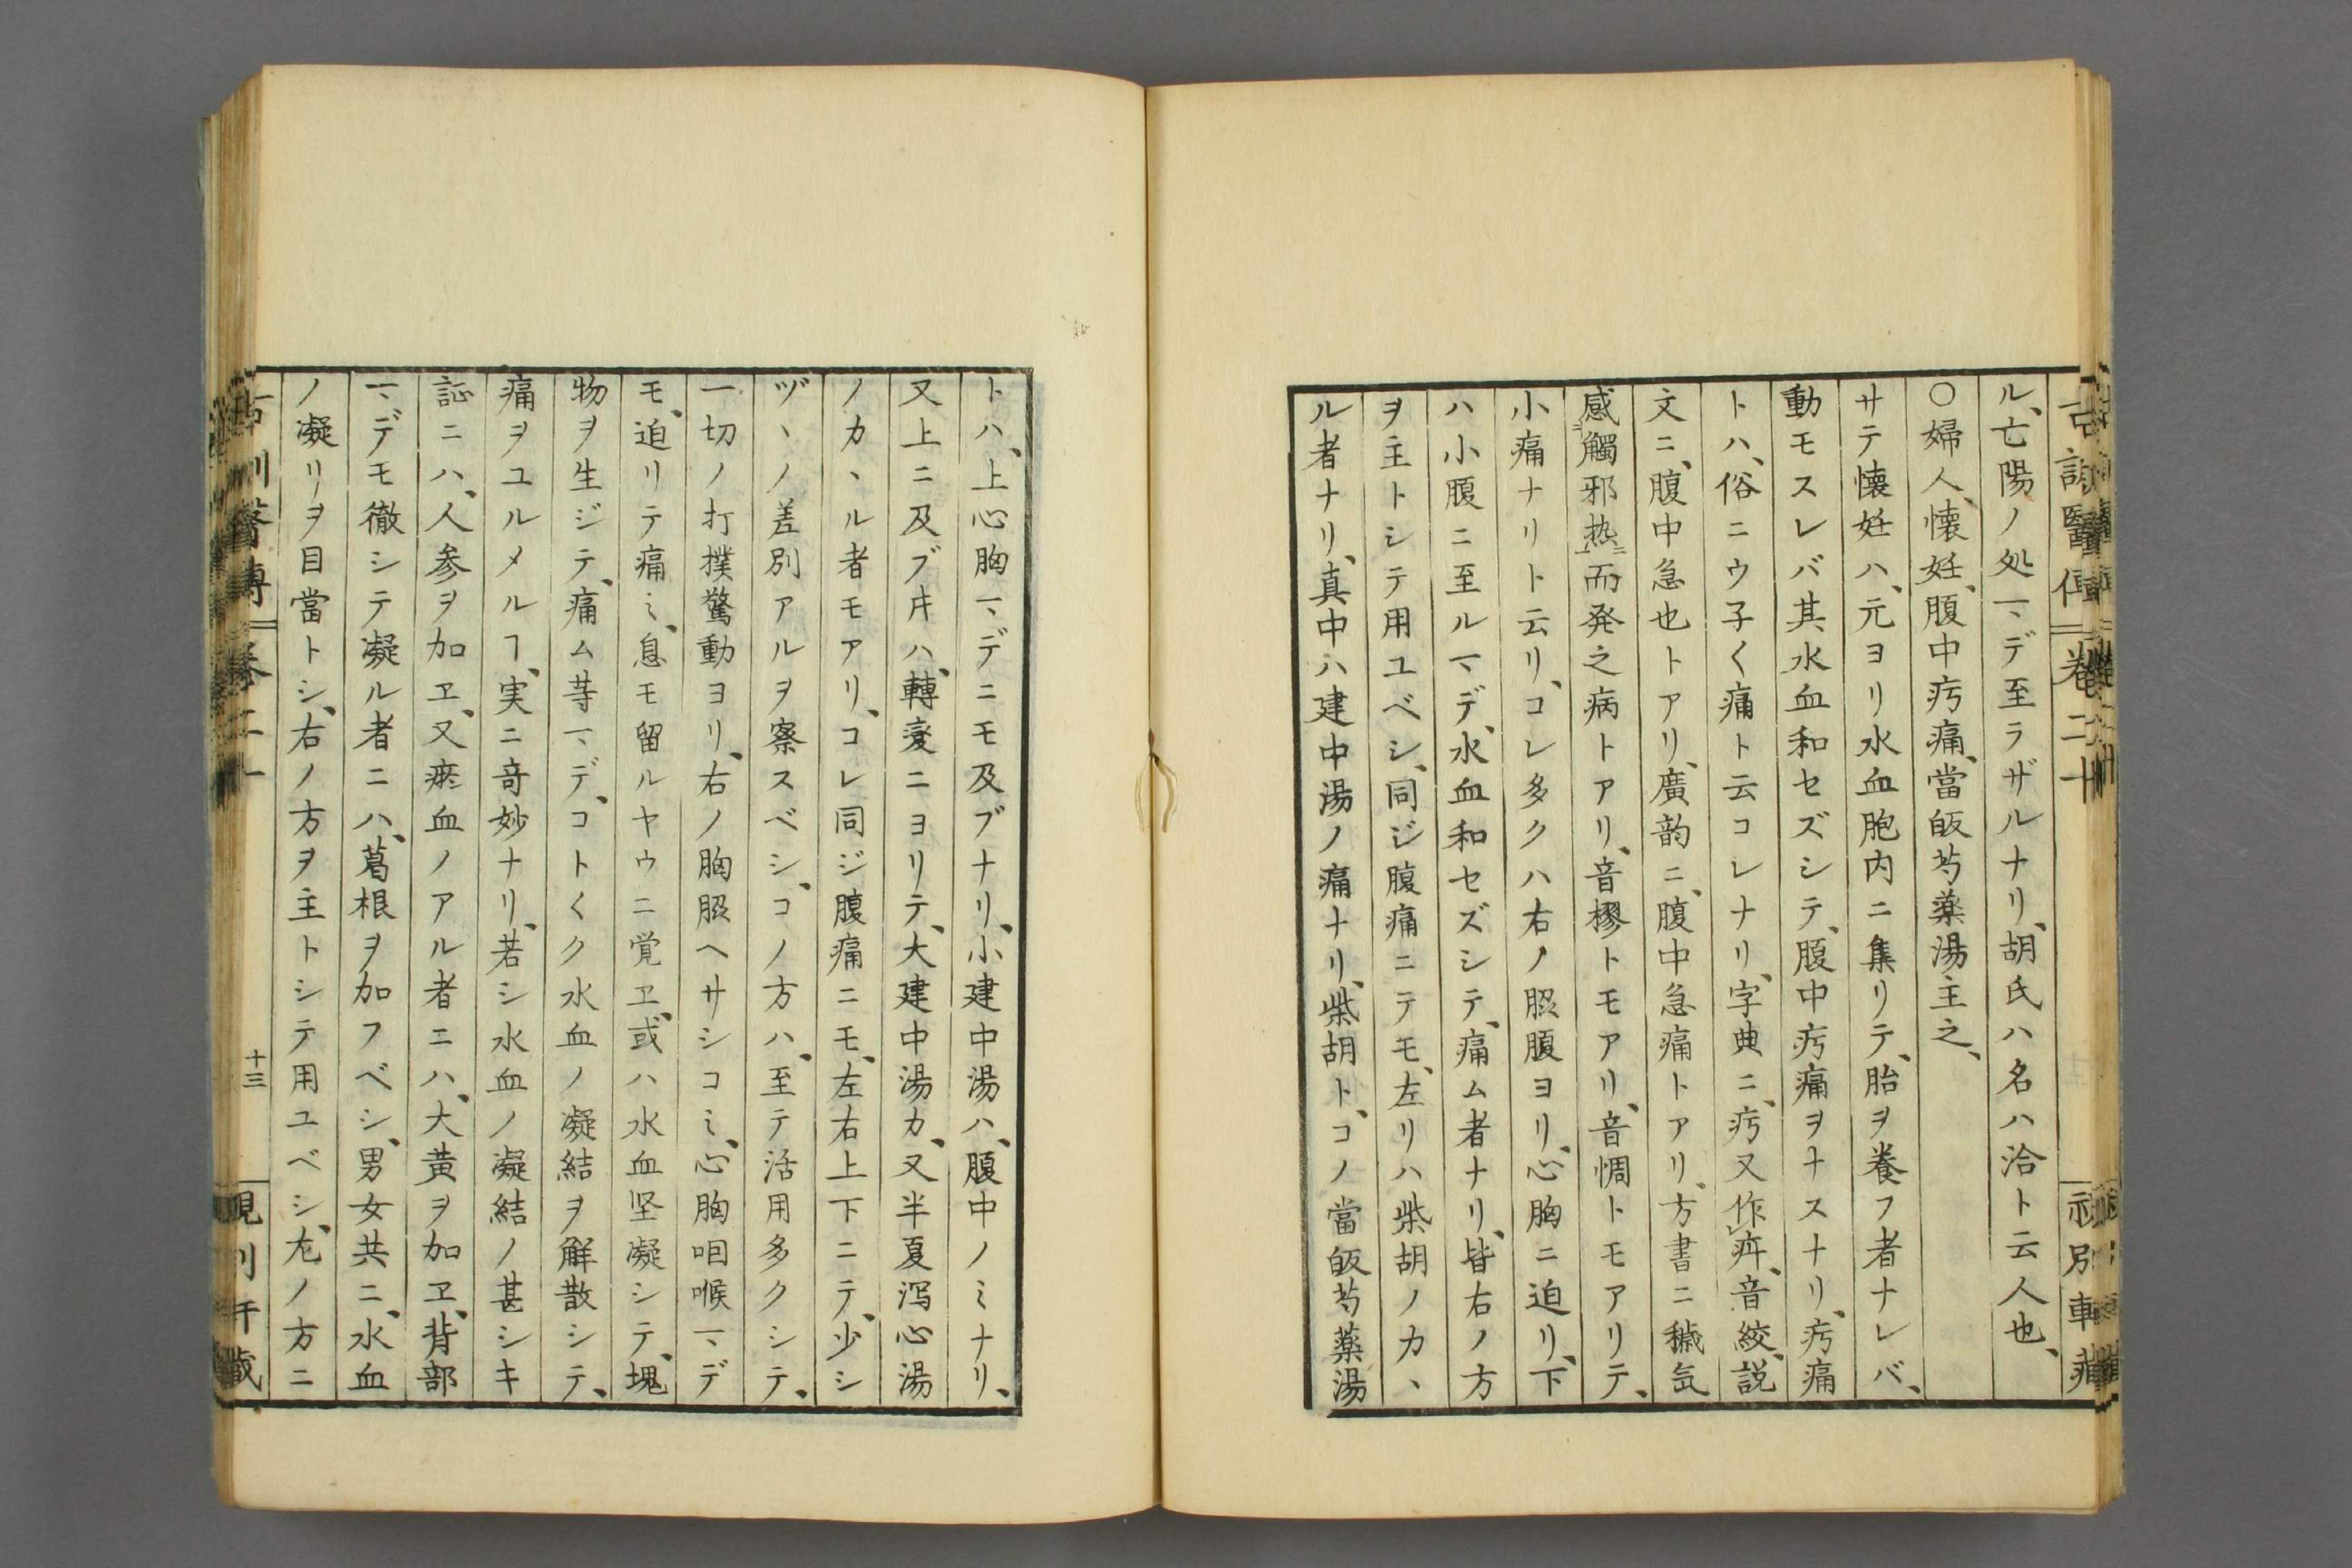 ル、亡陽ノ処マデ至ラザルナリ、胡氏ハ名ハ洽ト云人也、
○婦人、懐妊、腹中㽲痛、當皈芍薬湯主之、
サテ懐妊ハ、元ヨリ水血胞内ニ集リテ、胎ヲ養フ者ナレバ、
動モスレバ其水血和セズシテ、腹中㽲痛ヲナスナリ、㽲痛
トハ、俗ニウ子く痛ト云コレナリ、字典ニ、㽲又作㽱、音絞、説
文ニ、腹中急也トアリ、廣韵ニ、腹中急痛トアリ、方書ニ穢気
感觸邪热而発之病トアリ、音樛トモアリ、音惆トモアリテ、
小痛ナリト云リ、コレ多クハ右ノ䐃腹ヨリ、心胸ニ迫リ、下
ハ小腹ニ至ルマデ、水血和セズシテ、痛ム者ナリ、皆右ノ方
ヲ主トシテ用ユベシ、同ジ腹痛ニテモ、左リハ柴胡ノカヽ
ル者ナリ、真中ハ建中湯ノ痛ナリ、柴胡ト、コノ當皈芍薬湯
トハ、上心胸マデニモ及ブナリ、小建中湯ハ、腹中ノミナリ、
又上ニ及ブ片ハ、轉変ニヨリテ、大建中湯カ、又半夏瀉心湯
ノカヽル者モアリ、コレ同ジ腹痛ニモ、左右上下ニテ、少シ
ヅヽノ差別アルヲ察スベシ、コノ方ハ、至テ活用多クシテ、
一切ノ打撲驚動ヨリ、右ノ胸䐃ヘサシコミ、心胸咽喉マデ
モ、迫リテ痛ミ、息モ留ルヤウニ覚ヱ、或ハ水血坚凝シテ、塊
物ヲ生ジテ、痛ム䒭マデ、コトくク水血ノ凝結ヲ解散シテ、
痛ヲユルメルヿ、実ニ竒妙ナリ、若シ水血ノ凝結ノ甚シキ
証ニハ、人参ヲ加ヱ、又瘀血ノアル者ニハ、大黄ヲ加ヱ、背部
マデモ徹シテ凝ル者ニハ、葛根ヲ加フベシ、男女共ニ、水血
ノ凝リヲ目當トシ、右ノ方ヲ主トシテ用ユベシ、左ノ方ニ
十三